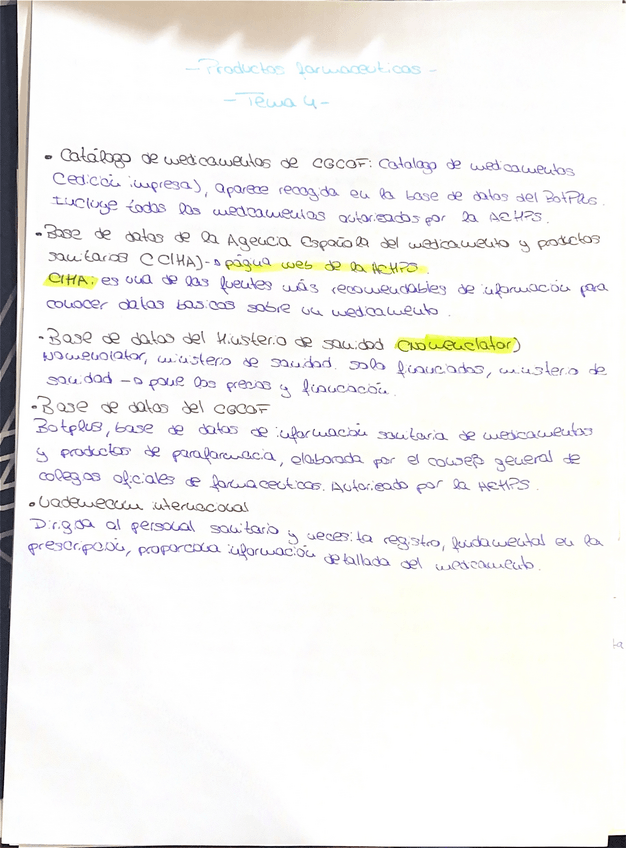 - Productos farmaceuticos -
- Tema 4 -
• Catálogo de medicamentos de CGCOF: Catalogo de medicamentos
(edición impresa), aparece recogida en la base de datos del BotPlus.
Incluye todos los medicamentos autorizados por la AEMPS.
• Base de datos de la Agencia Española del medicamento y productos
sanitarios (CIMA) → página web de la AEMPS.
CIMA: es una de las fuentes más recomendables de información para
conocer datos basicos sobre un medicamento.
• Base de datos del Ministerio de sanidad (Nomenclator)
Nomenclator, ministerio de sanidad. solo financiados, ministerio de
sanidad → pone los precios y financación.
• Base de datos del CGCOF
Botplus, base de datos de información sanitaria de medicamentos
y productos de parafarmacia, elaborada por el consejo general de
colegios oficiales de farmaceuticos. Autorizado por la AEMPS.
• Vademecum internacional
Dirigida al personal sanitario y necesita registro, fundamental en la
prescripción, proporciona información detallada del medicamento.